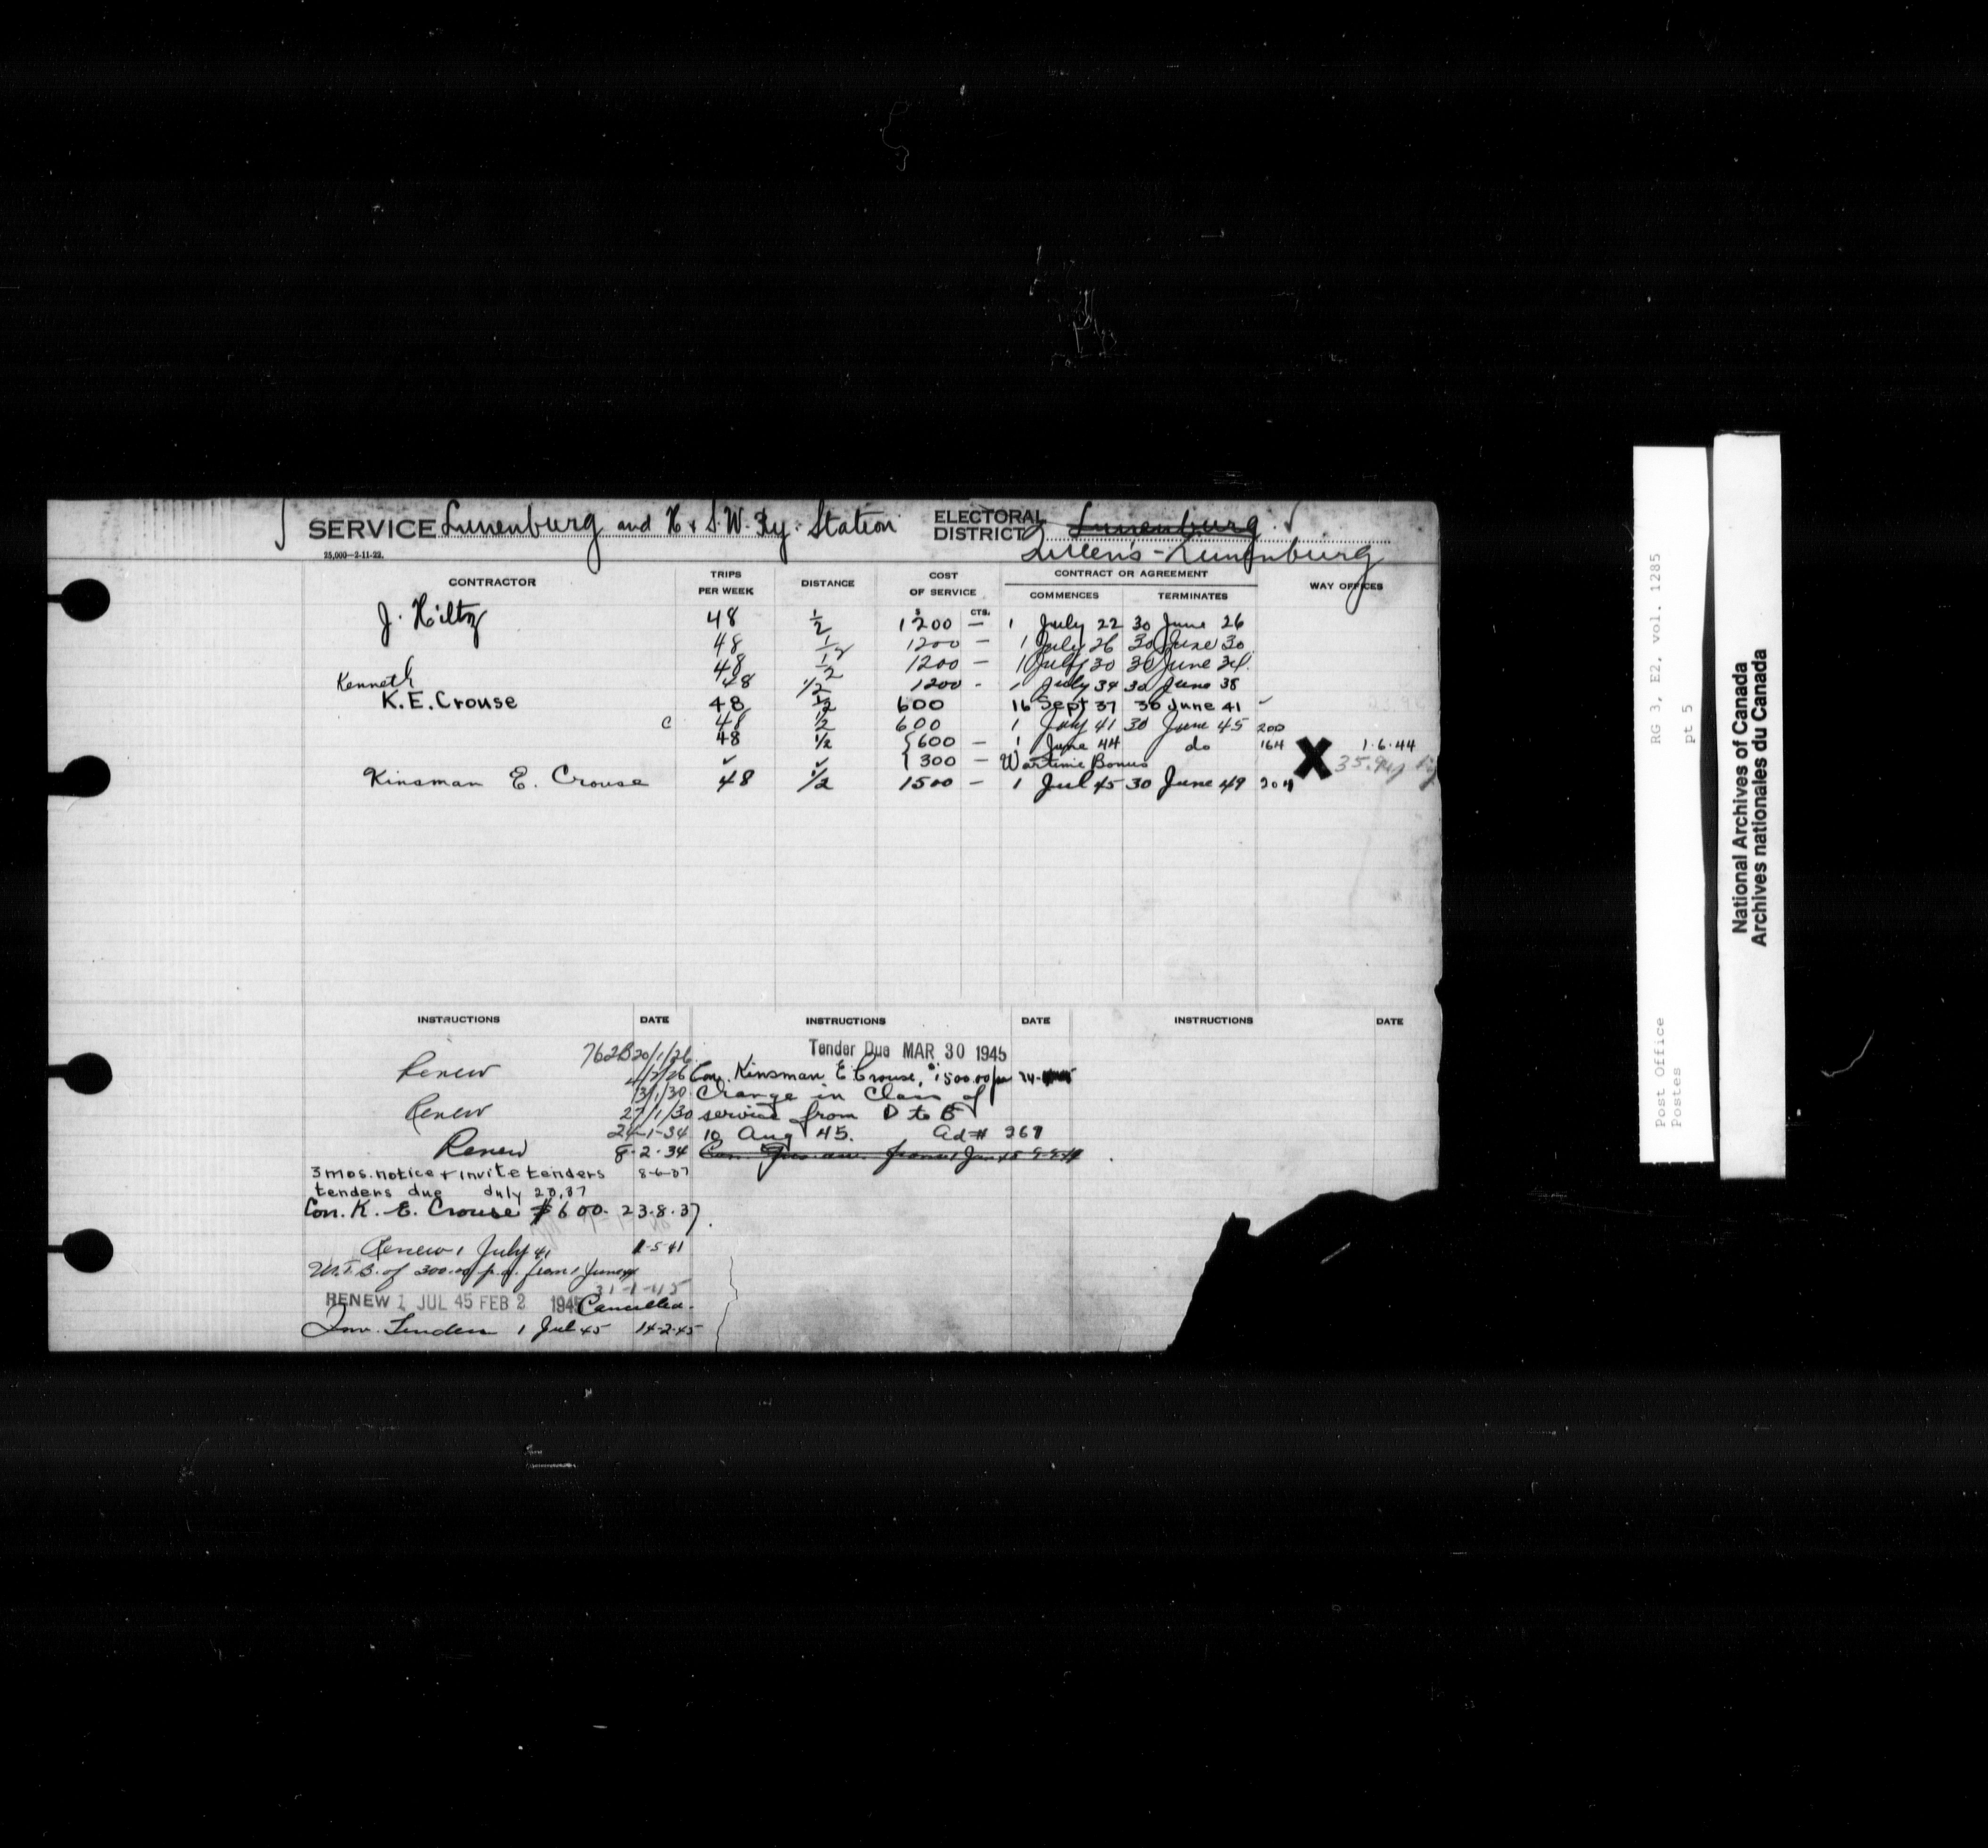 SERVICE Lunenburg and H & S.W. Ry. Station ELECTORAL DISTRICT Lunenburg
Queens-Lunenburg
25,000—2-11-22.
CONTRACTOR TRIPS PER WEEK DISTANCE COST OF SERVICE CONTRACT OR AGREEMENT COMMENCES TERMINATES WAY OFFICES
$ CTS.
J. Hiltz 48 1/2 1200 — 1 July 22 30 June 26
48 1/2 1200 — 1 July 26 30 June 30
48 1/2 1200 — 1 July 30 30 June 34
48 1/2 1200 - 1 July 34 30 June 38
Kenneth
K.E. Crouse 48 1/2 600 16 Sept 37 30 June 41
c 48 1/2 600 1 July 41 30 June 45 200
48 1/2 {600 — 1 June 44 do 164 X 1-6-44
{300 — Wartime Bonus
Kinsman E. Crouse 48 1/2 1500 — 1 Jul 45 30 June 49 204
INSTRUCTIONS DATE INSTRUCTIONS DATE INSTRUCTIONS DATE
762B 20/1/26
Renew 4/2/26
13/1/30
Renew 27/1/30
24-1-34
Renew 8-2-34
3 mos. notice & invite tenders 8-6-37
tenders due July 20, 37
Con. K. E. Crouse $600. 23-8-37
Renew 1 July 41 1-5-41
W.T.B. of 300.00 p.a. from 1 June 44
RENEW 1 JUL 45 FEB 2 1945 Cancelled.
Inv. Tenders 1 Jul 45 14-2-45
Tender Due MAR 30 1945
Con. Kinsman E. Crouse, $1500.00
Change in Class of
service from D to B
10 Aug 45. Ad # 269
Post Office
Postes
RG 3, E2, vol. 1285
pt 5
National Archives of Canada
Archives nationales du Canada